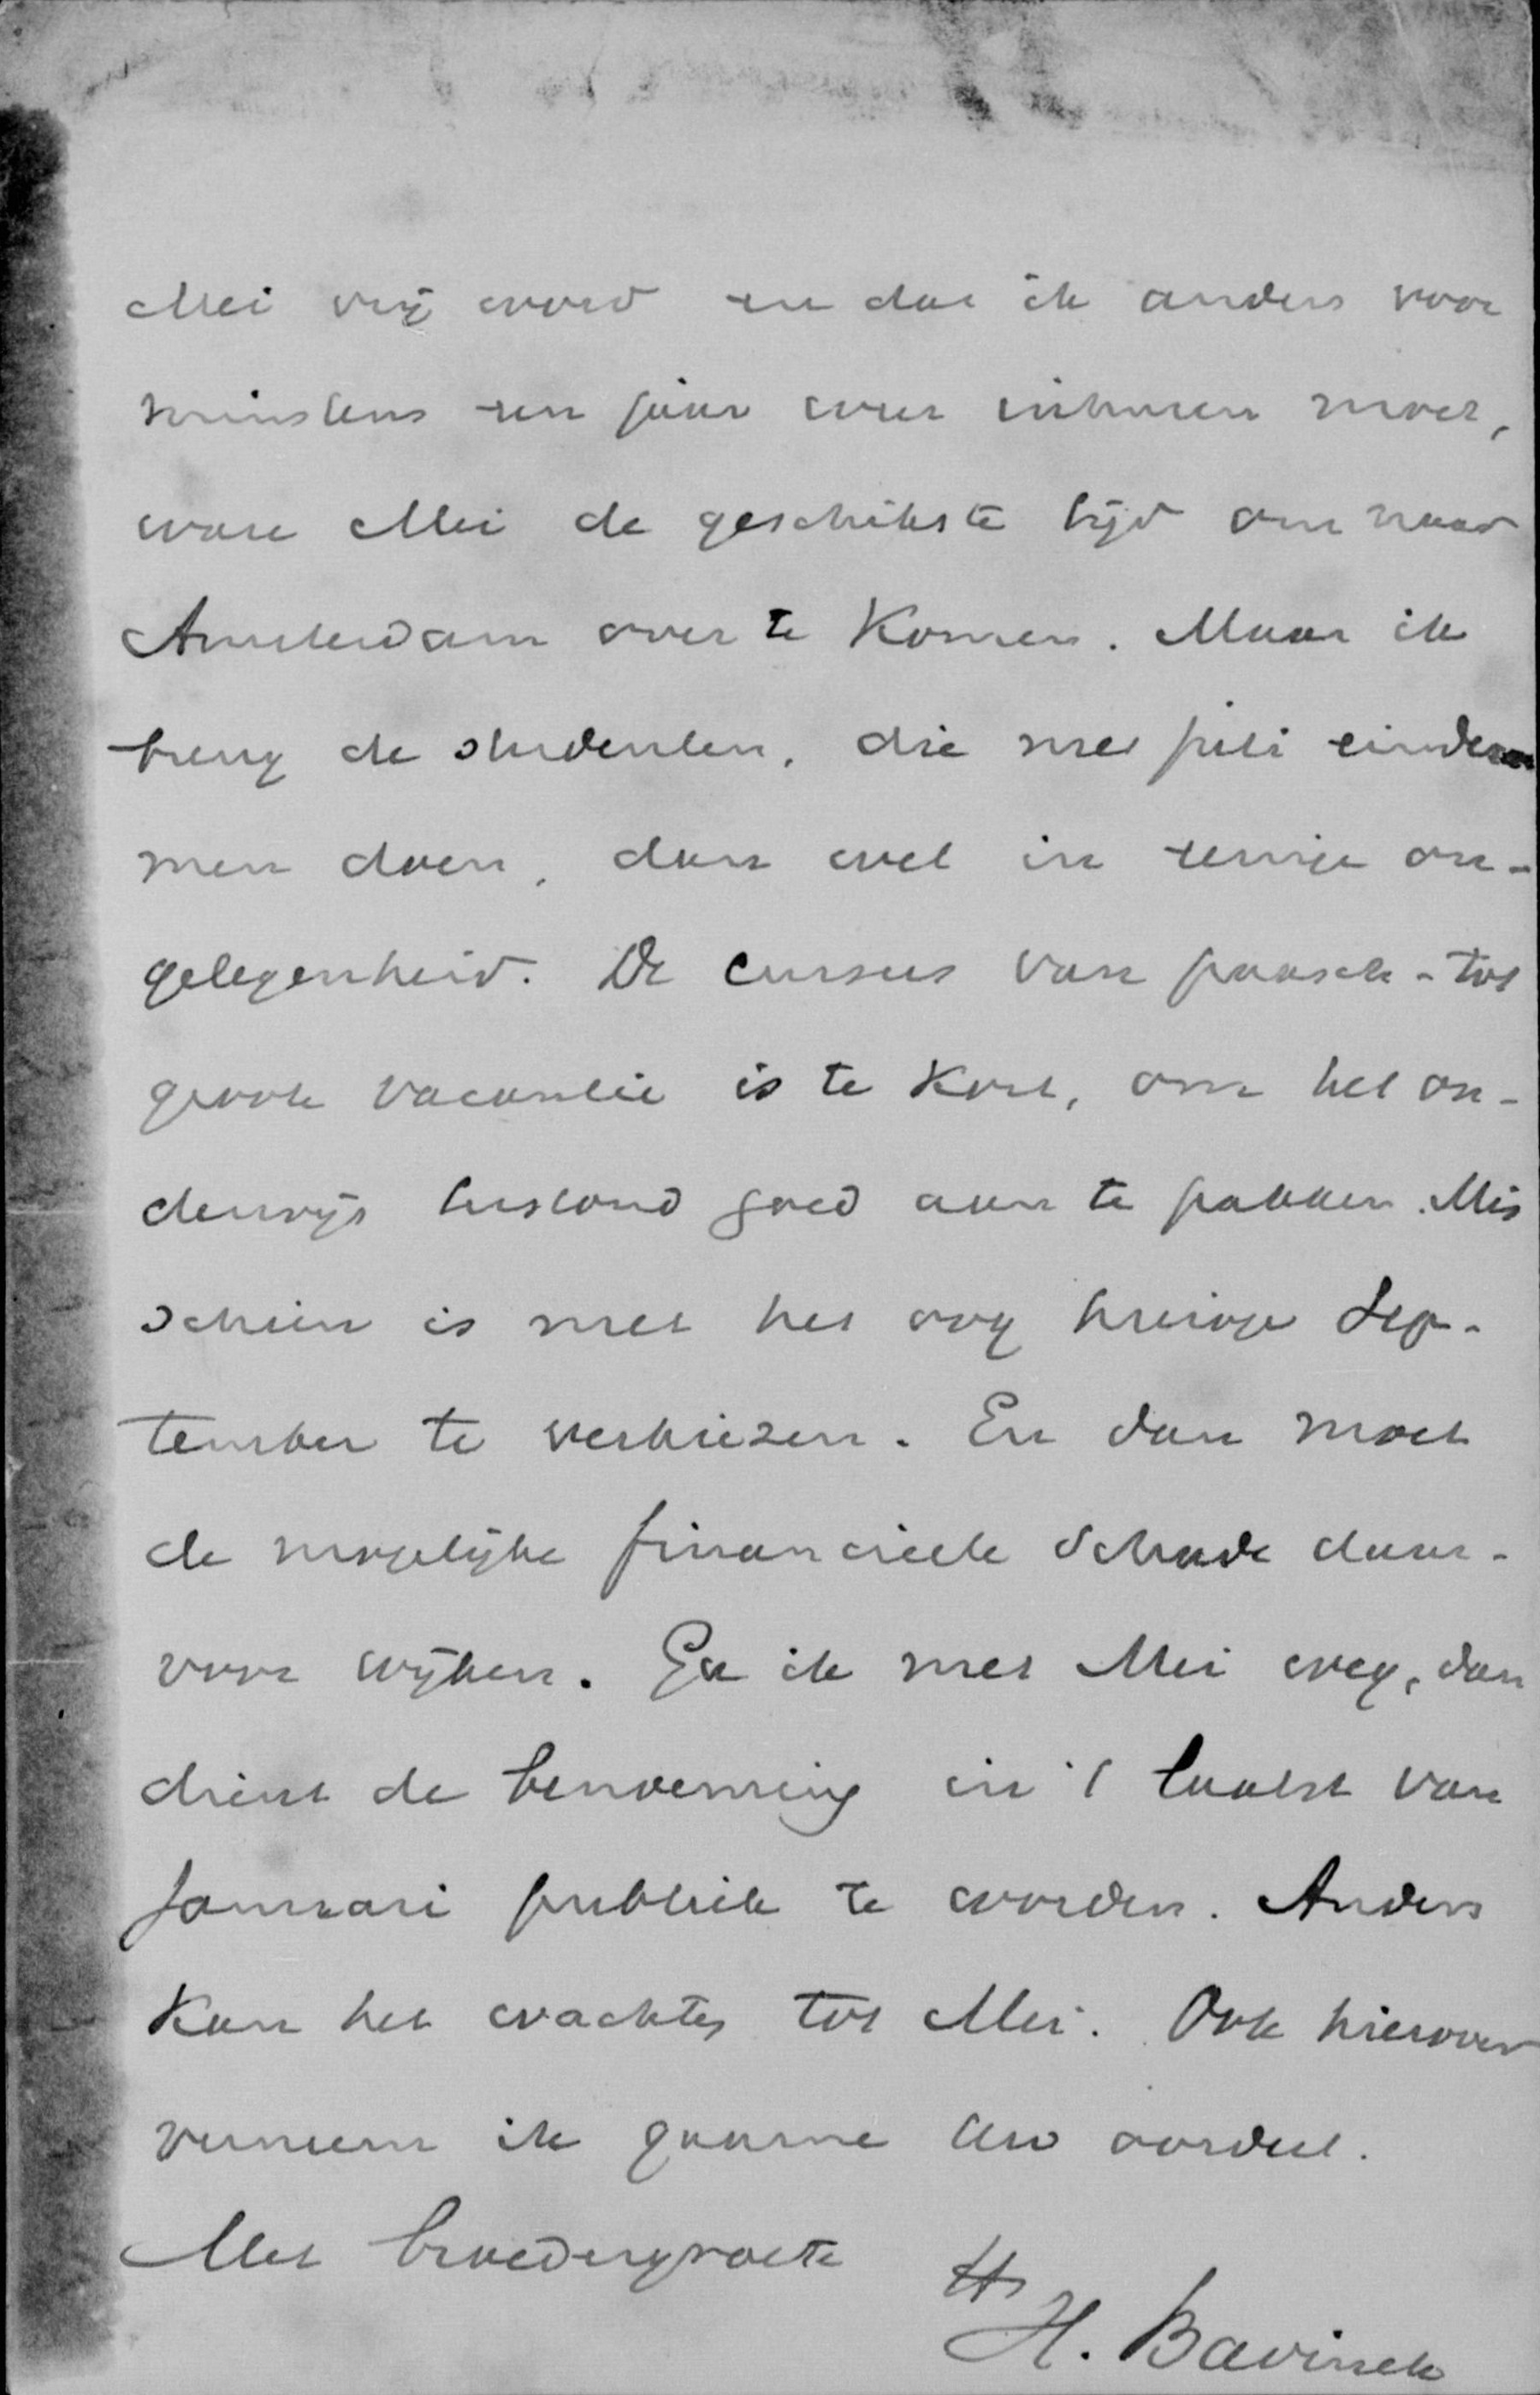 Mei vrij word en dat ik anders voor
minstens een jaar weer inhuren moet,
ware Mei de geschikste tijd om naar
Amsterdam over te komen. Maar ik
breng de studenten, die met juli eindexa
men doen, dan wel in eenige on-
gelegenheid. De cursus van paasch - tot
groote vacantie is te kort, om het on-
derwijs terstond goed aan te pakken. Mis
schien is met het oog hierop Sep-
tember te verkiezen. En dan moet
de mogelijke financieele schade daar-
voor wijken. Ga ik met Mei weg, dan
dient de benoeming in 't laatst van
Januari publiek te worden. Anders
kan het wachten tot Mei. Ook hierover
verneem ik gaarne Uw oordeel.
Met broedergroete
H. Bavinck